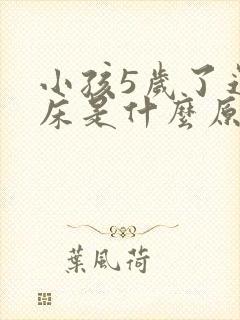 小孩5歲了
床是什麼原
葉風荷